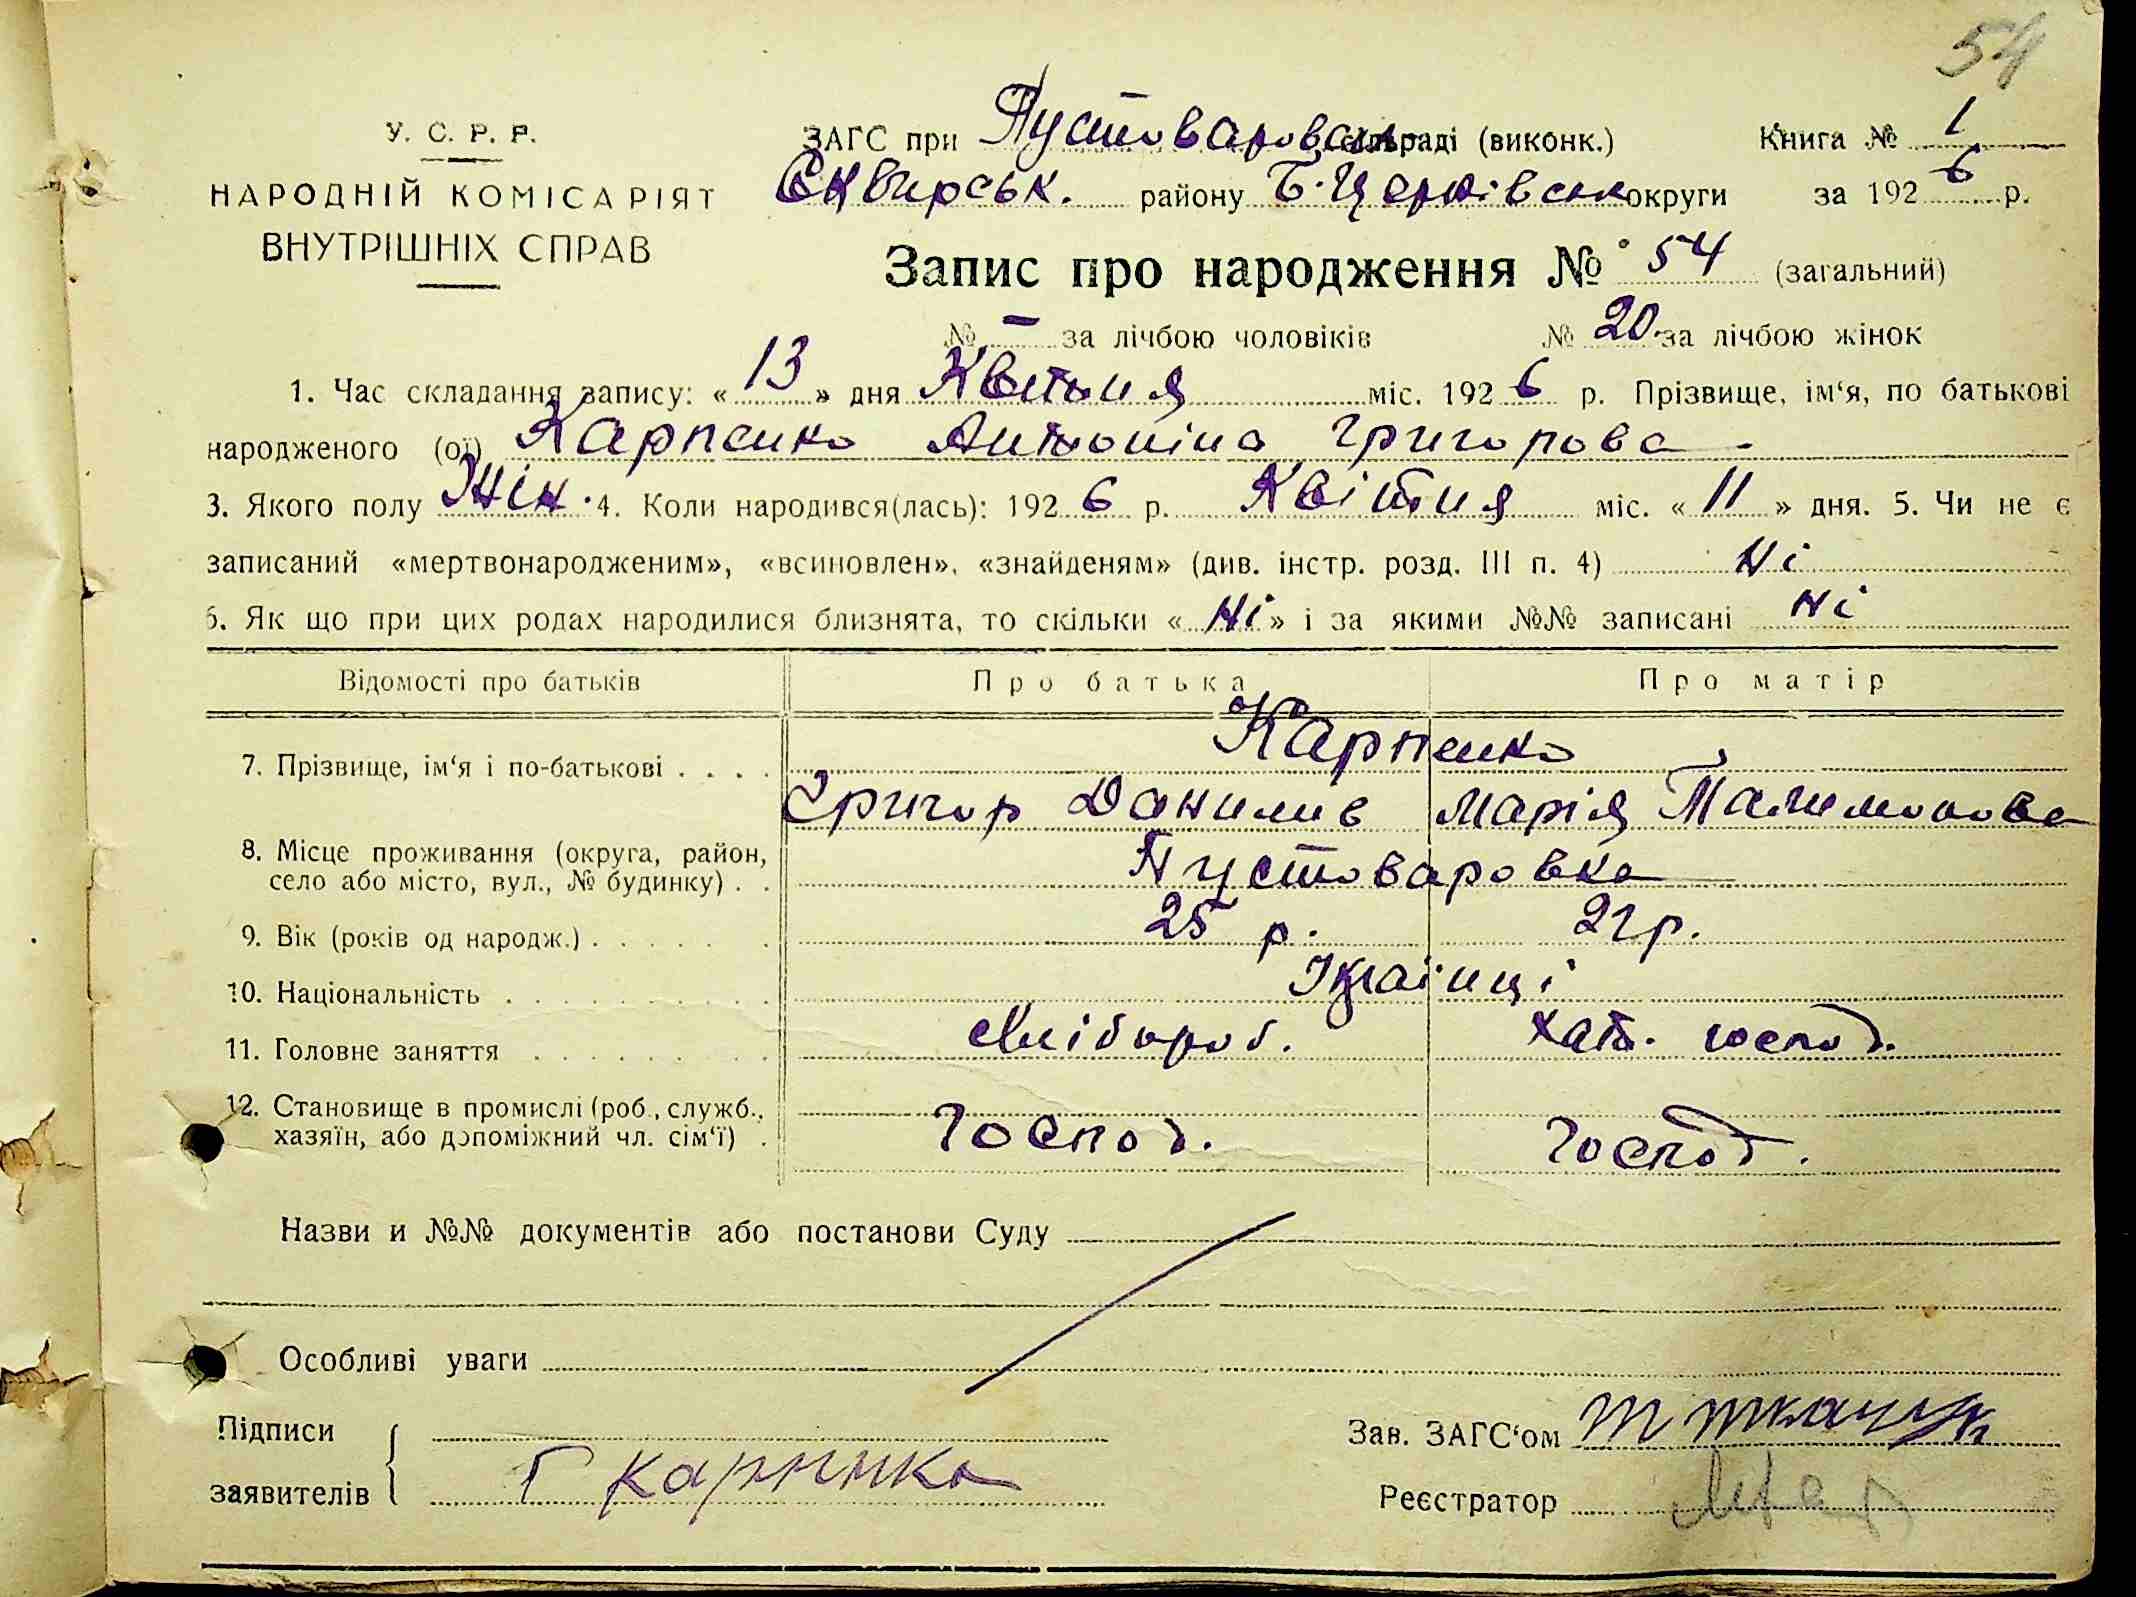 54
У. С. Р. Р.
НАРОДНІЙ КОМІСАРІЯТ
ВНУТРІШНІХ СПРАВ
ЗАГС при Пустоваровск. сільраді (виконк.) Книга № 1
Сквирськ. району Б-Церківськ округи за 192 6 р.
Запис про народження № 54 (загальний)
№ – за лічбою чоловіків № 20. за лічбою жінок
1. Час складання запису: « 13 » дня Квітня міс. 192 6 р. Прізвище, ім‘я, по батькові
народженого (ої) Карпенко Антоніна Григорова
3. Якого полу Жін. 4. Коли народився(лась): 192 6 р. Квітня міс. « 11 » дня. 5. Чи не є
записаний «мертвонародженим», «всиновлен», «знайденям» (див. інстр. розд. III п. 4) Ні
6. Як що при цих родах народилися близнята, то скільки « Ні » і за якими №№ записані Ні
Відомості про батьків Про батька Про матір
7. Прізвище, ім‘я і по-батькові . . . . Карпенко
Григор Данилив Марія Талимонова
8. Місце проживання (округа, район,
село або місто, вул., № будинку) . . Пустоваровка
9. Вік (років од народж.) . . . . . . 25 р. 21 р.
10. Національність . . . . . . . . . Українці
11. Головне заняття . . . . . . . . Хлібороб. хатн. господ.
12. Становище в промислі (роб., служб.,
хазяїн, або допоміжний чл. сім‘ї) . Господ. Господ.
Назви и №№ документів або постанови Суду
Особливі уваги
Підписи
заявителів Г Карпенко
Зав. ЗАГС‘ом Т Ткачук
Реєстратор